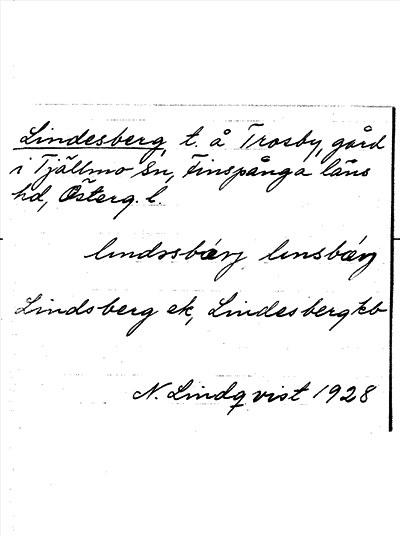 Lindesberg, t. å Trosby, gård
i Tjällmo sn, Finspånga läns
hd, Österg. l.
Lindsberg ek, Lindesberg kb
N. Lindqvist 1928